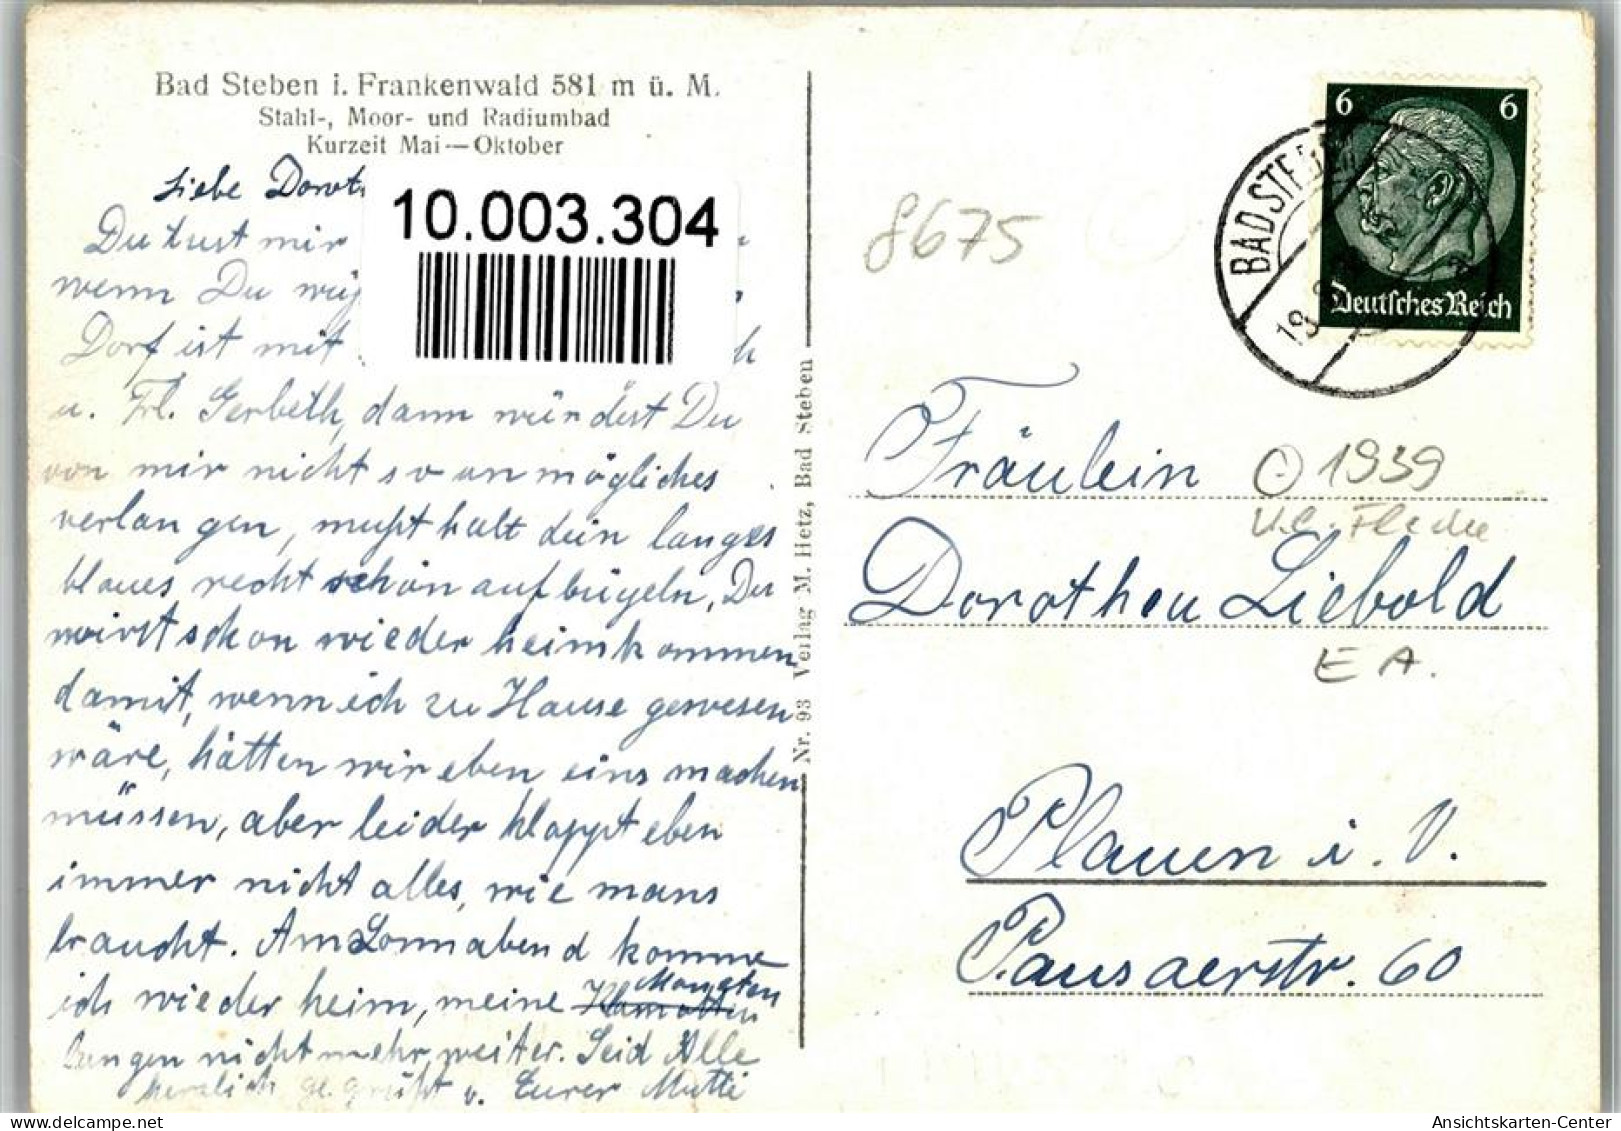 Bad Steben i. Frankenwald 581 m ü. M.
Stahl-, Moor- und Radiumbad
Kurzeit Mai — Oktober
Liebe Dorot
10.003.304
Du tust mir
wenn Du
Dorf ist mit
u. Frl. Gerbeth, dann würdest Du
von mir nicht so unmögliches
verlangen, mußt halt dein langes
blaues recht schön aufbügeln, Du
wirst schon wieder heimkommen
damit, wenn ich zu Hause gewesen
wäre, hätten wir eben eins machen
müssen, aber leider klappt eben
immer nicht alles, wie mans
braucht. Am Sonnabend komme
ich wieder heim, meine
langen nicht mehr weiter. Seid Alle
herzlich gegrüßt v. Eurer Mutti
Nr. 93 Verlag M. Hetz, Bad Steben
8675
6 6
Deutsches Reich
BAD STEBEN
19
Fräulein
1939
Dorothea Liebold
E A.
Plauen i. V.
Pausaerstr. 60
Ansichtskarten-Center